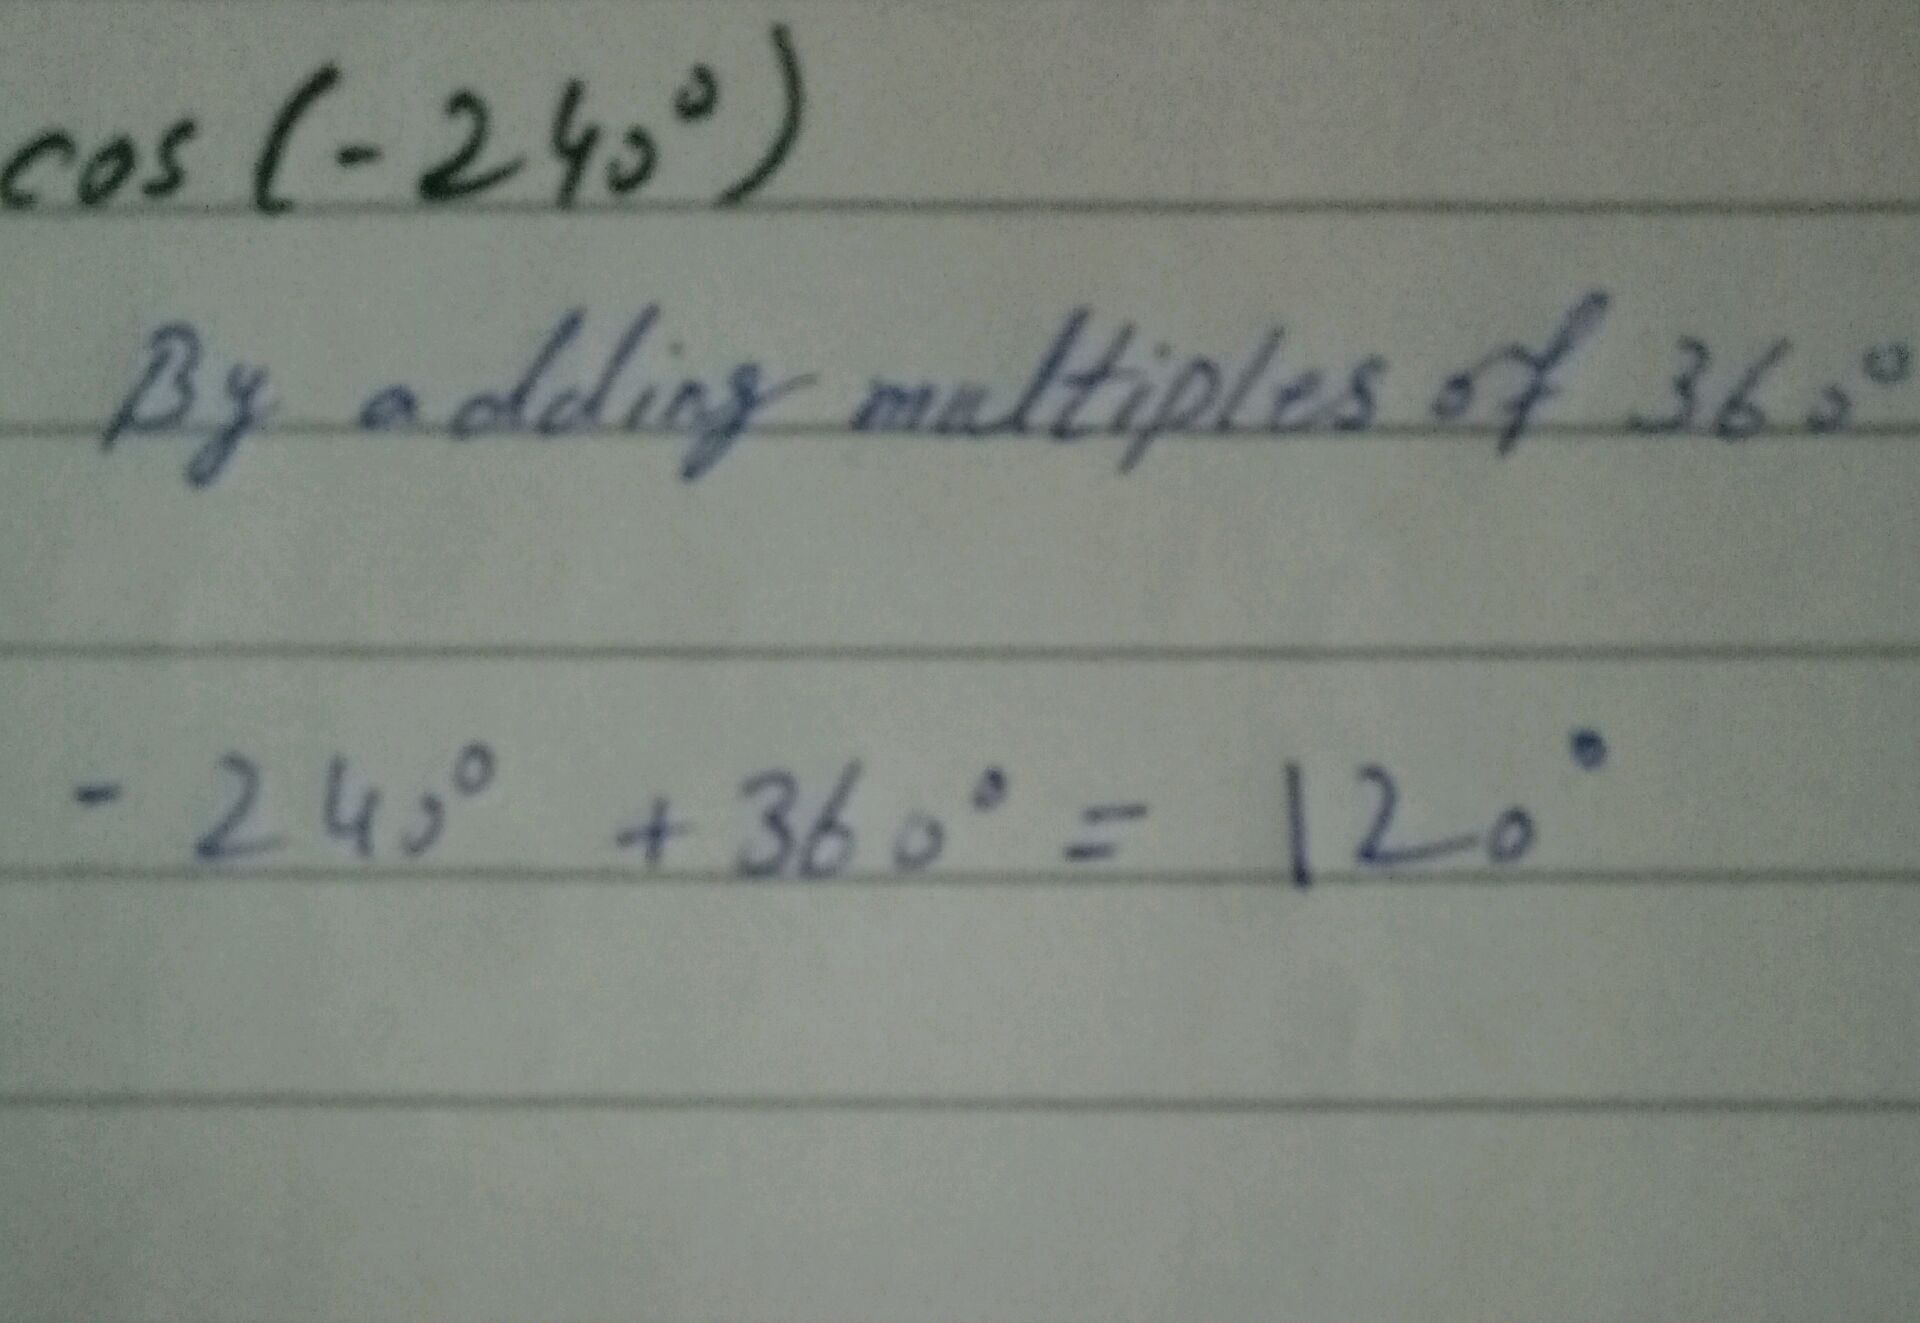 cos (-240°)
By adding multiples of 360°
- 240° + 360° = 120°